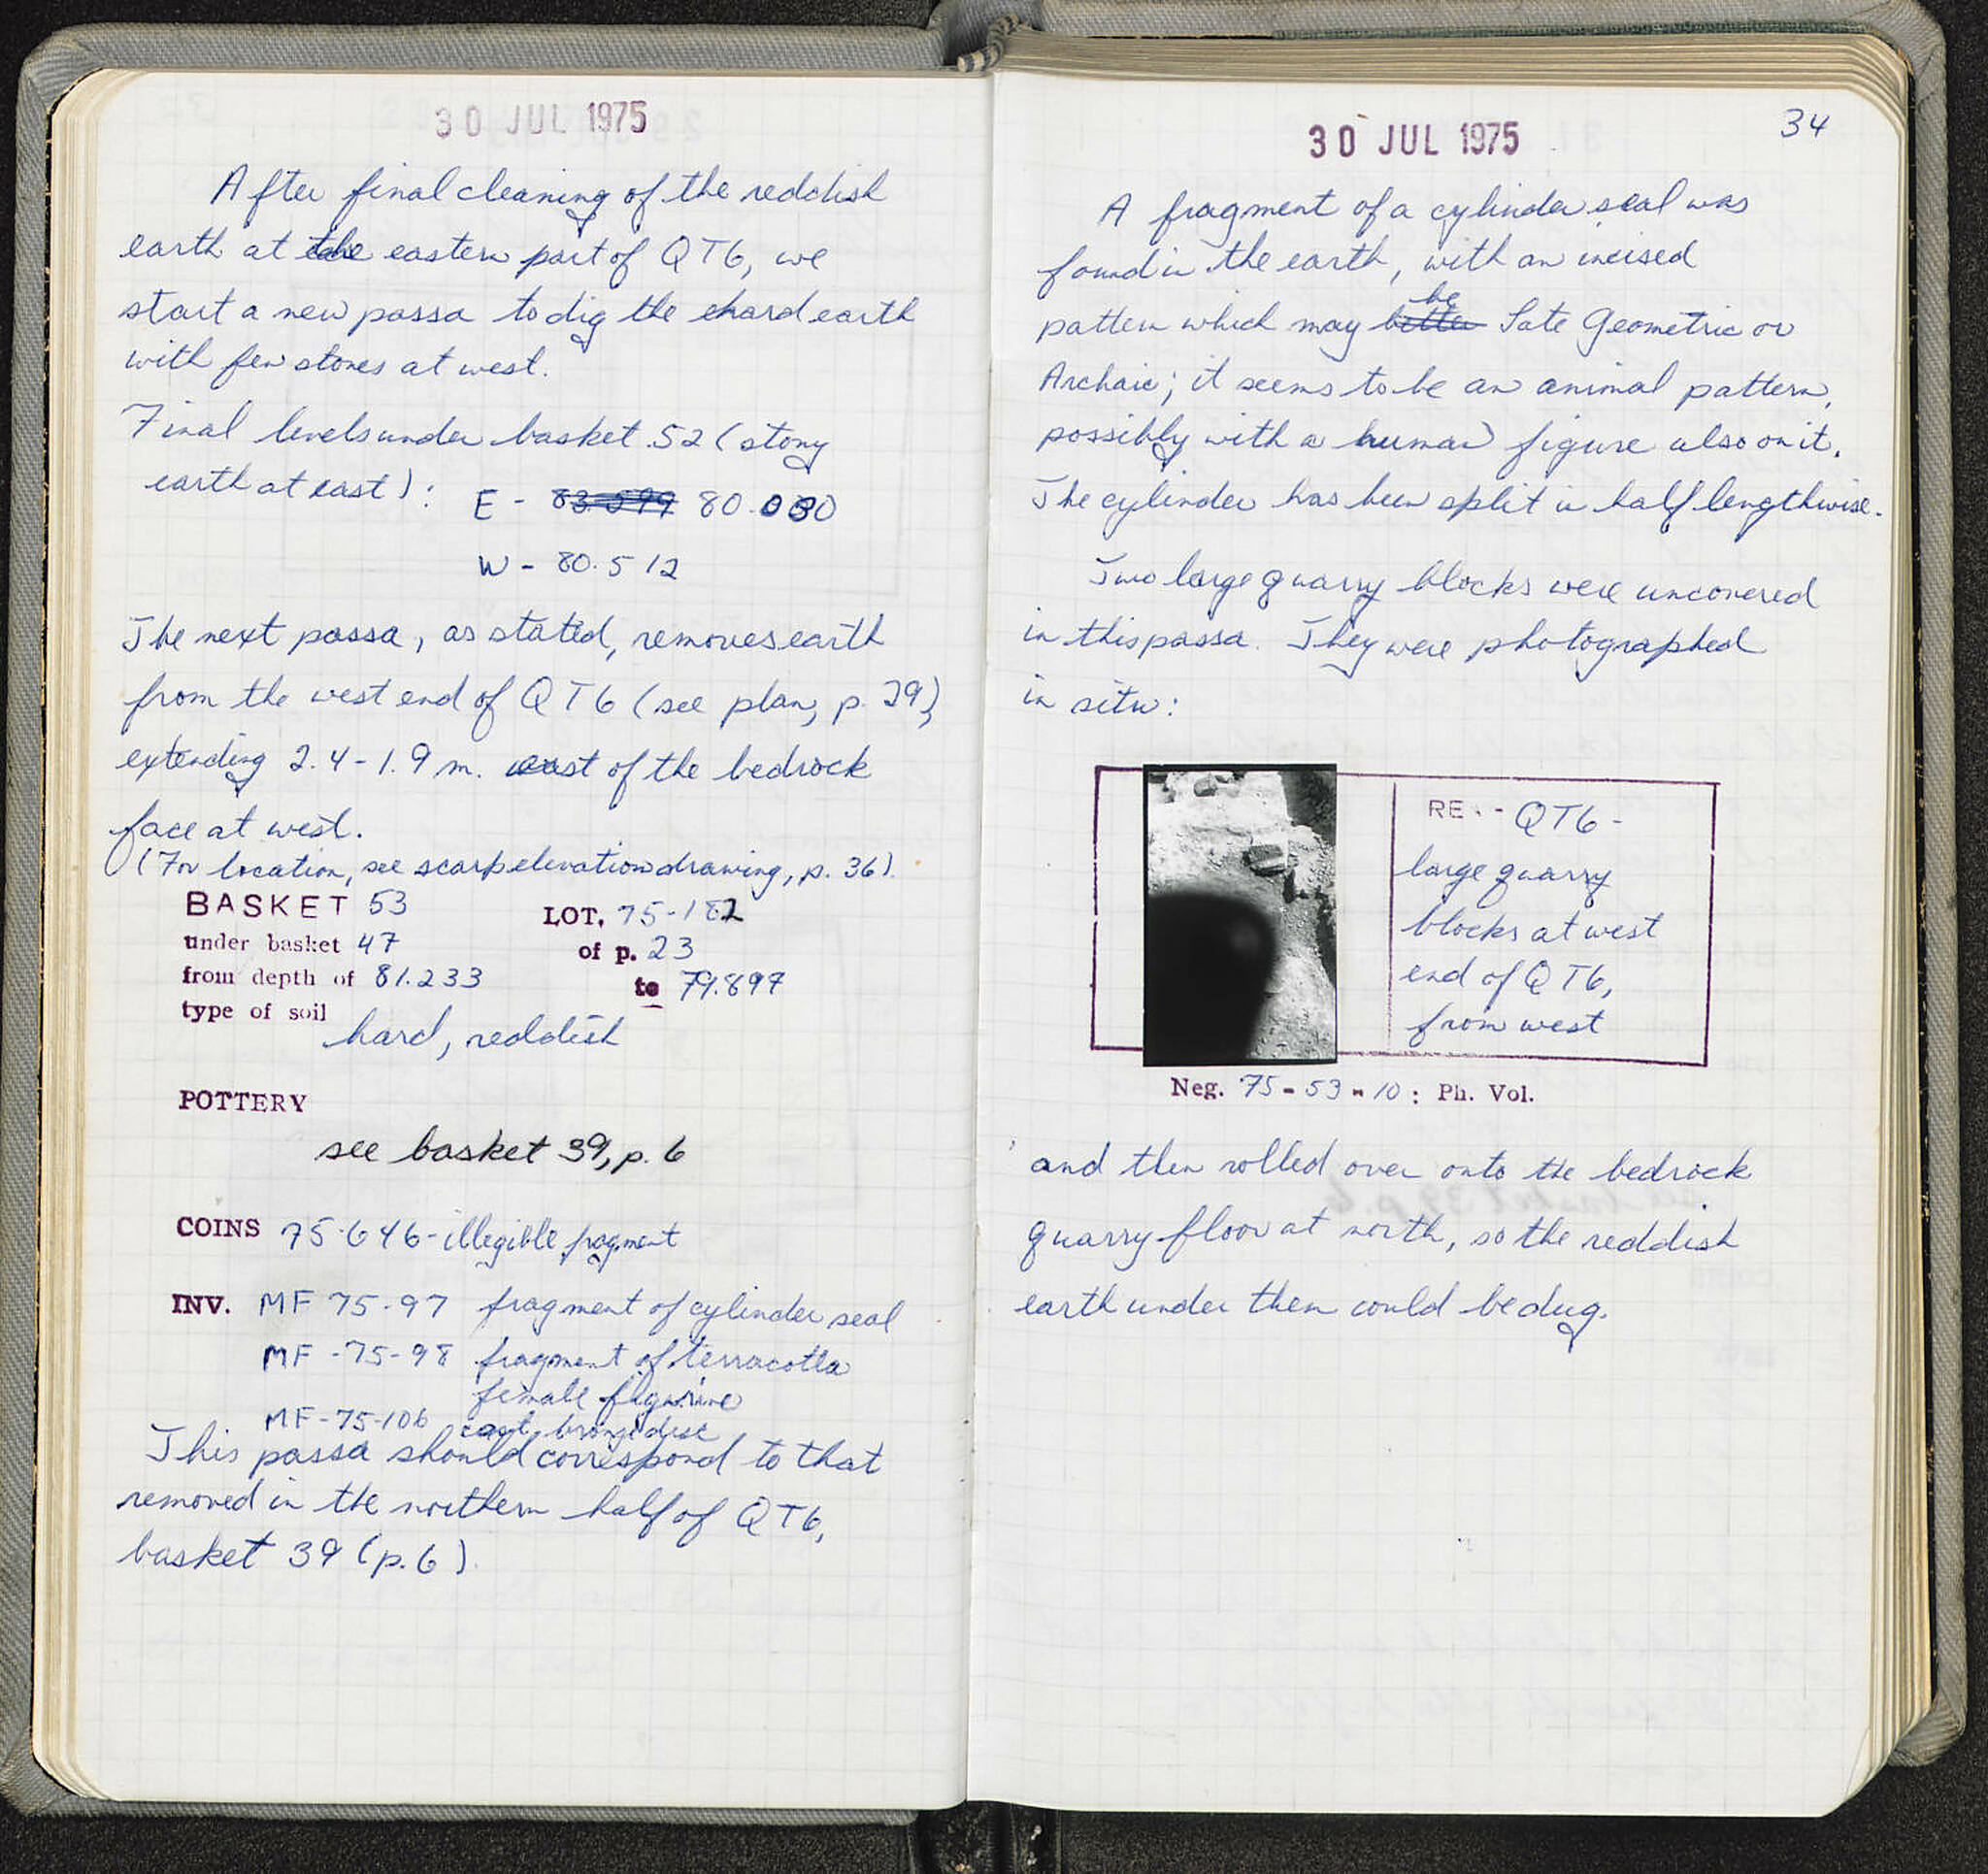 30 JUL 1975
After final cleaning of the reddish
earth at the eastern part of QT6, we
start a new passa to dig the hard earth
with few stones at west.
Final levels under basket 52 (stony
earth at east): E - 80.030
W - 80.512
The next passa, as stated, removes earth
from the west end of QT6 (see plan, p. 29),
extending 2.4-1.9 m. east of the bedrock
face at west.
(For location, see scarp elevation drawing, p. 36).
BASKET 53 LOT. 75-182
under basket 47 of p. 23
from depth of 81.233 to 79.897
type of soil
hard, reddish
POTTERY
see basket 39, p. 6
COINS 75-646-illegible fragment
INV. MF 75-97 fragment of cylinder seal
MF-75-98 fragment of terracotta
female figurine
MF-75-106 cast bronze disc
This passa should correspond to that
removed in the northern half of QT6,
basket 39 (p. 6).
34
30 JUL 1975
A fragment of a cylinder seal was
found in the earth, with an incised
be
pattern which may better Late Geometric or
Archaic; it seems to be an animal pattern,
possibly with a human figure also on it.
The cylinder has been split in half lengthwise.
Two large quarry blocks were uncovered
in this passa. They were photographed
in situ:
RE: - QT6 -
large quarry
blocks at west
end of QT6,
from west
Neg. 75-53-10: Ph. Vol.
and then rolled over onto the bedrock
quarry floor at north, so the reddish
earth under them could be dug.